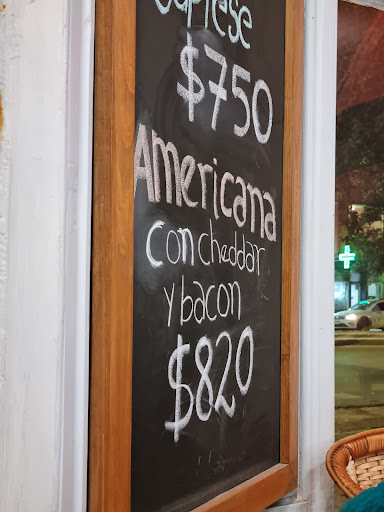 Caprese
$750
Americana
con cheddar
y bacon
$820